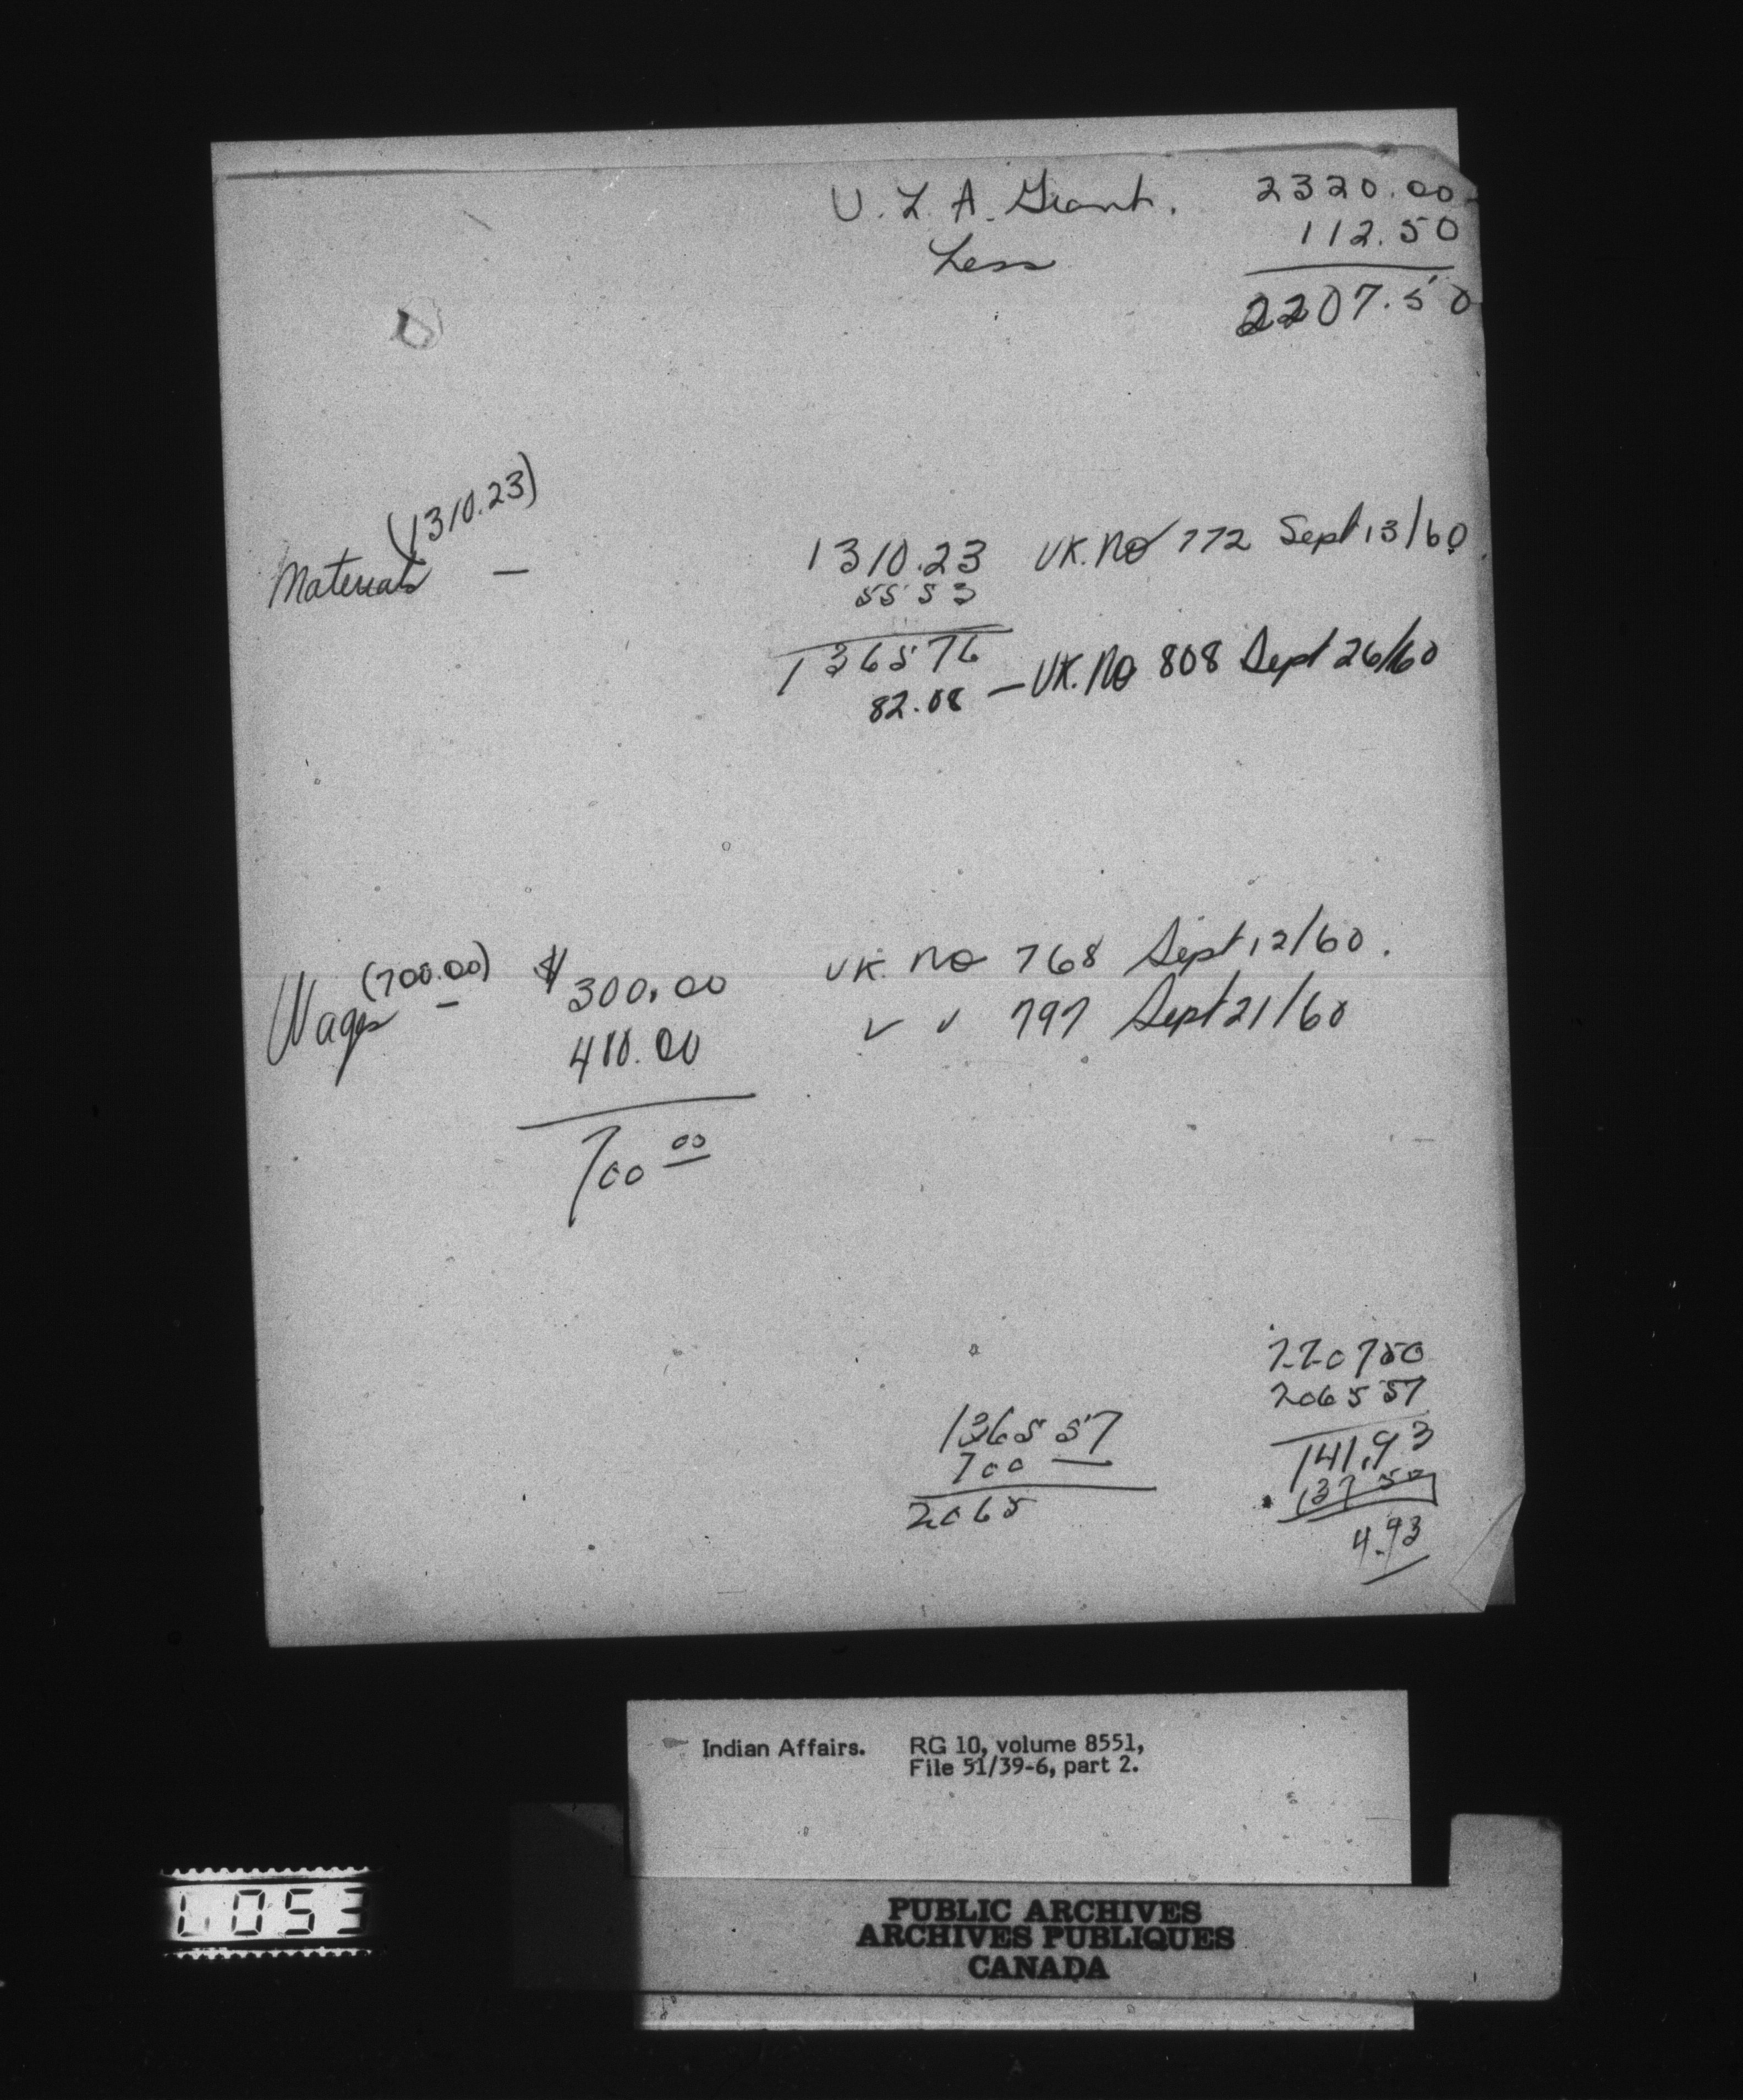 U. L. A. Grant. 2320.00
Less 112.50
2207.50
(1310.23)
Materials — 1310.23 VK. No 772 Sept 13/60
55 53
1365 76
82.08 — VK. No 808 Sept 26/60
Wages (700.00) — $ 300.00 VK. No 768 Sept 12/60.
400.00 ✓ ✓ 797 Sept 21/60
700 00
2207 50
2065 57
1365 57 141.93
700 — 137 50
2065 4.93
Indian Affairs. RG 10, volume 8551,
File 51/39-6, part 2.
PUBLIC ARCHIVES
ARCHIVES PUBLIQUES
CANADA